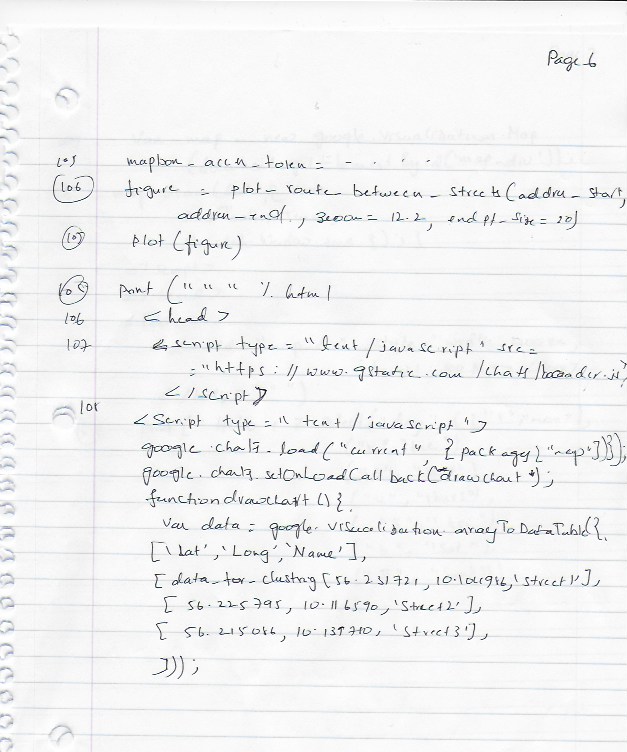 Page 6
105 mapbox_accen_token = - . . .
106 figure = plot_route_between_streets (addres_start,
addres_end, zoom = 12.2, endpt_size = 20)
107 plot (figure)
105 print (" " " % html
106 <head>
107 <script type = "text/javascript" src=
="https://www.gstatic.com/charts/loader.js">
</script>
108
<script type = "text/javascript">
google.charts.load("current", {packages["map"]});
google.charts.setOnLoadCallback(drawchart);
function drawchart () {
var data = google.visualization.arrayToDataTable{
['Lat', 'Long', 'Name'],
[data_for_clustring [56.231721, 10.101986, 'Street1'],
[56.225795, 10.116590, 'Street2'],
[56.215086, 10.139710, 'Street3'],
]));